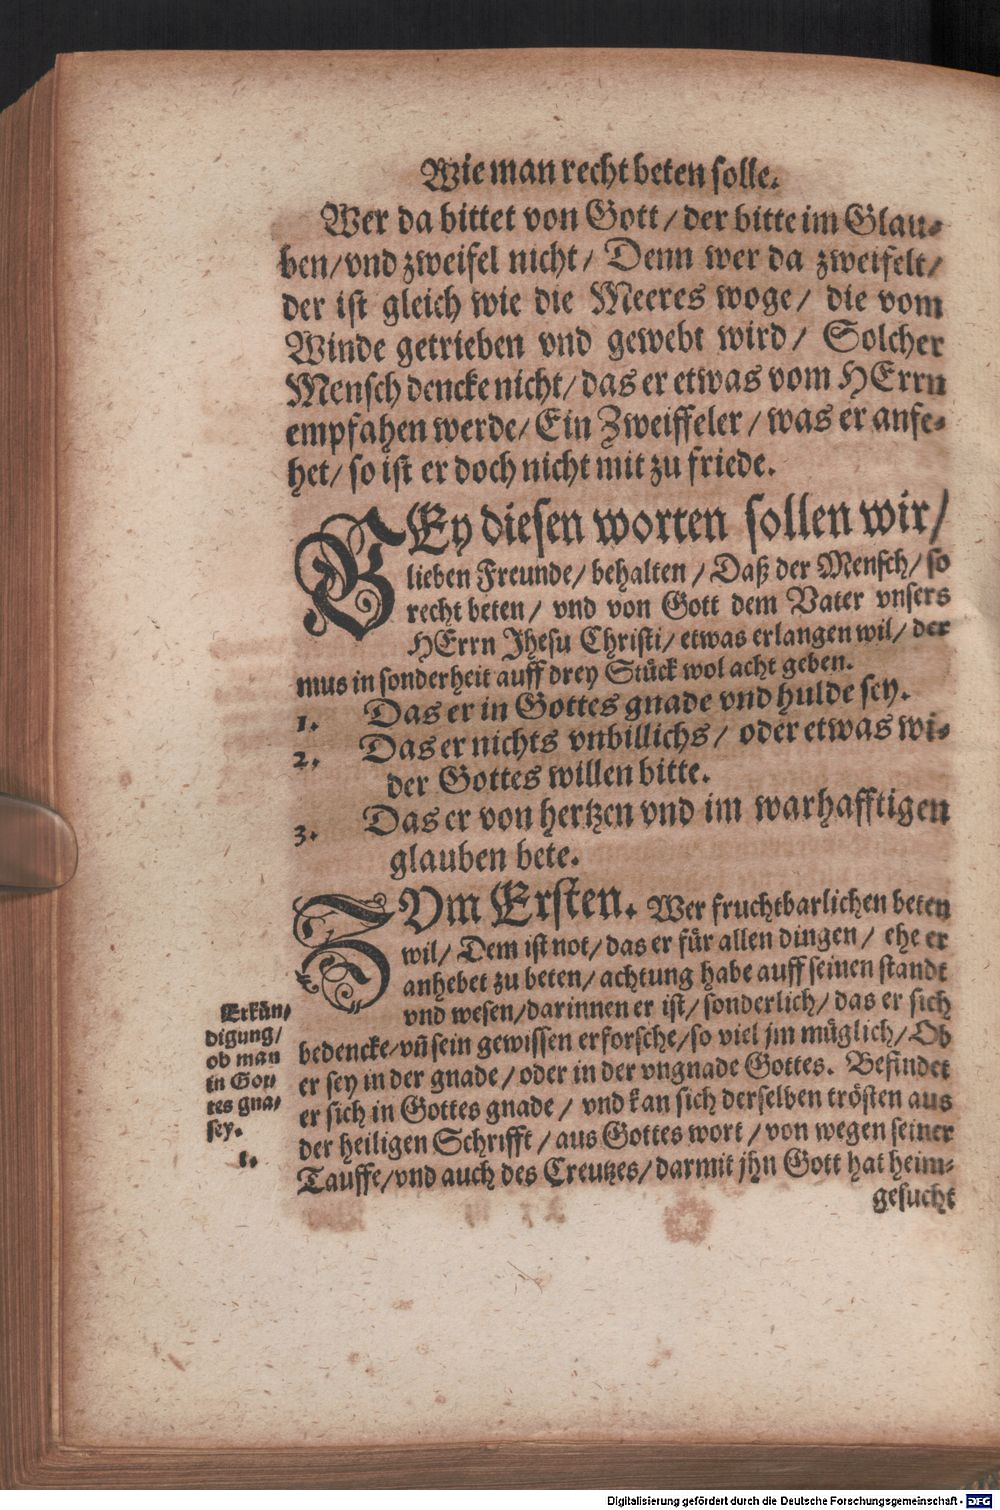 Wie man recht beten solle.
Wer da bittet von Gott / der bitte im Glau-
ben / vnd zweifel nicht / Denn wer da zweifelt /
der ist gleich wie die Meeres woge / die vom
Winde getrieben vnd gewebt wird / Solcher
Mensch dencke nicht / das er etwas vom HErrn
empfahen werde / Ein Zweiffeler / was er anfe-
het / so ist er doch nicht mit zu friede.
BEy diesen worten sollen wir /
lieben Freunde / behalten / Daß der Mensch / so
recht beten / vnd von Gott dem Vater vnsers
HErrn Jhesu Christi / etwas erlangen wil / der
mus in sonderheit auff drey Stück wol acht geben.
1. Das er in Gottes gnade vnd hulde sey.
2. Das er nichts vnbillichs / oder etwas wi-
der Gottes willen bitte.
3. Das er von hertzen vnd im warhafftigen
glauben bete.
ZVm Ersten. Wer fruchtbarlichen beten
wil / Dem ist not / das er für allen dingen / ehe er
anhebet zu beten / achtung habe auff seinen standt
vnd wesen / darinnen er ist / sonderlich / das er sich
bedencke / vñ sein gewissen erforsche / so viel jm müglich / Ob
er sey in der gnade / oder in der vngnade Gottes. Befindet
er sich in Gottes gnade / vnd kan sich derselben trösten aus
der heiligen Schrifft / aus Gottes wort / von wegen seiner
Tauffe / vnd auch des Creutzes / darmit jhn Gott hat heim-
gesucht
Erkün-
digung /
ob man
in Got-
tes gna-
sey.
1.
Digitalisierung gefördert durch die Deutsche Forschungsgemeinschaft - DFG